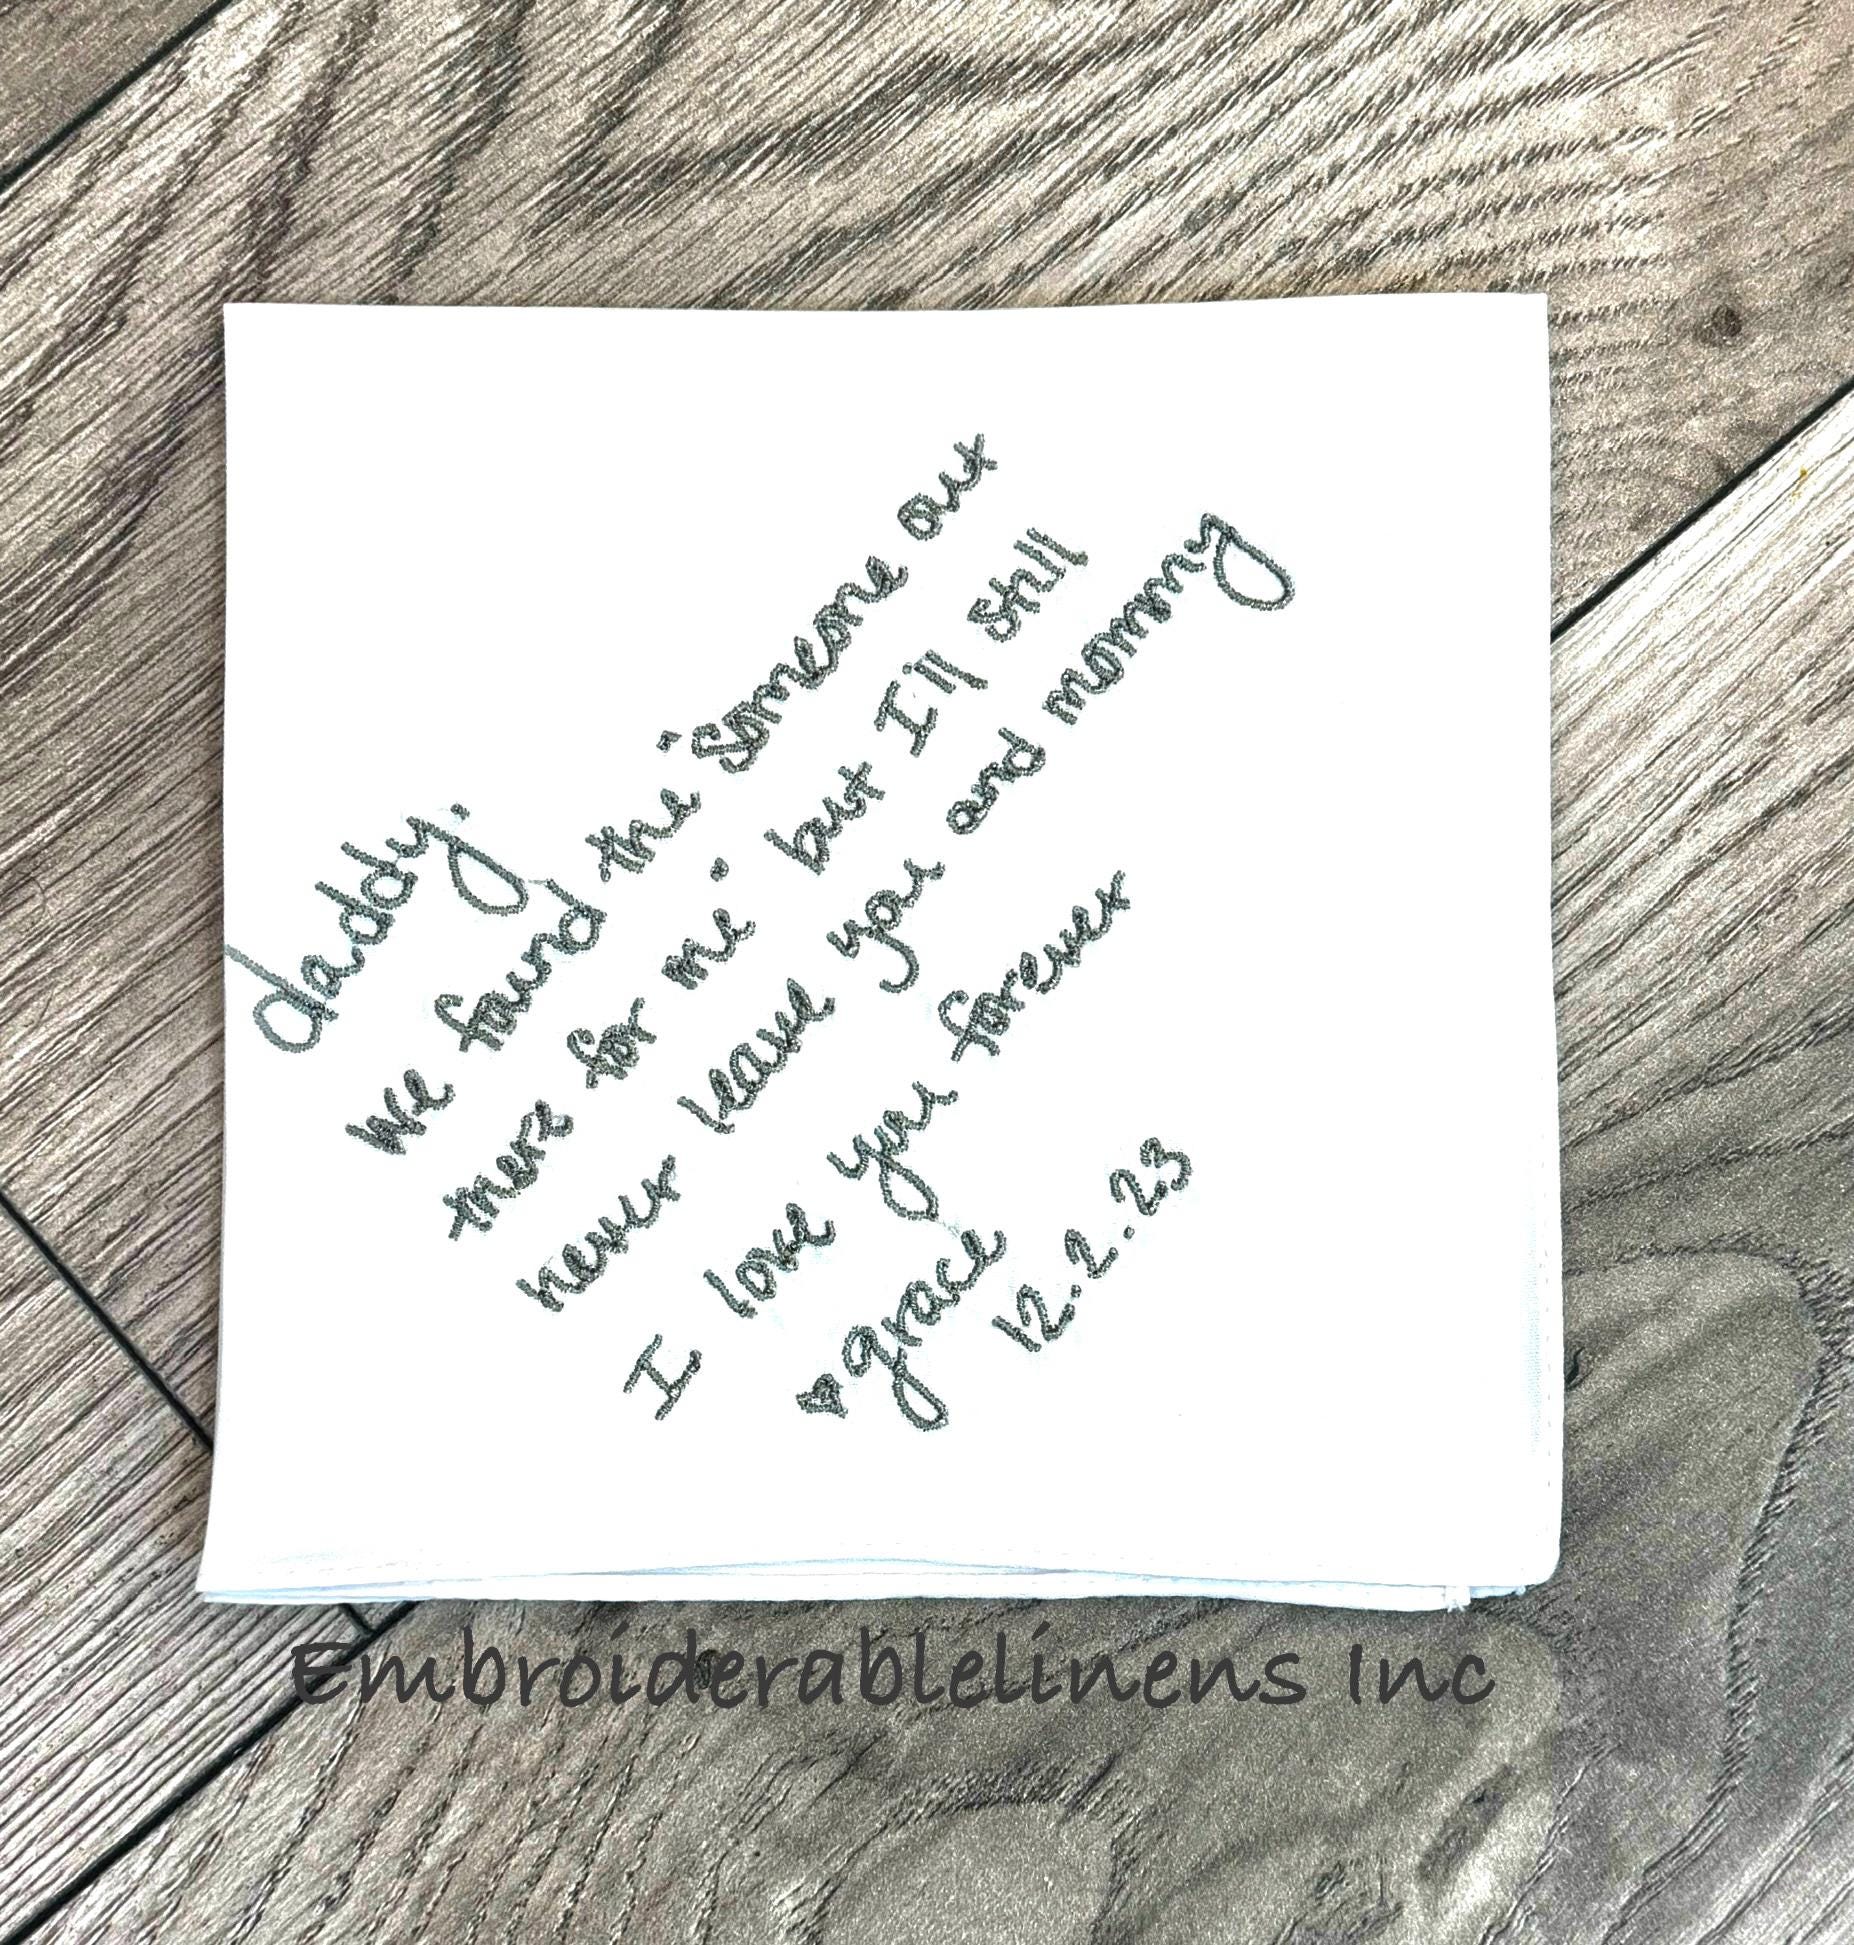 daddy.
we found the "someone out
there for me". but I'll still
never leave you and mommy
I love you forever
♥grace
12.2.23
Embroiderablelinens Inc